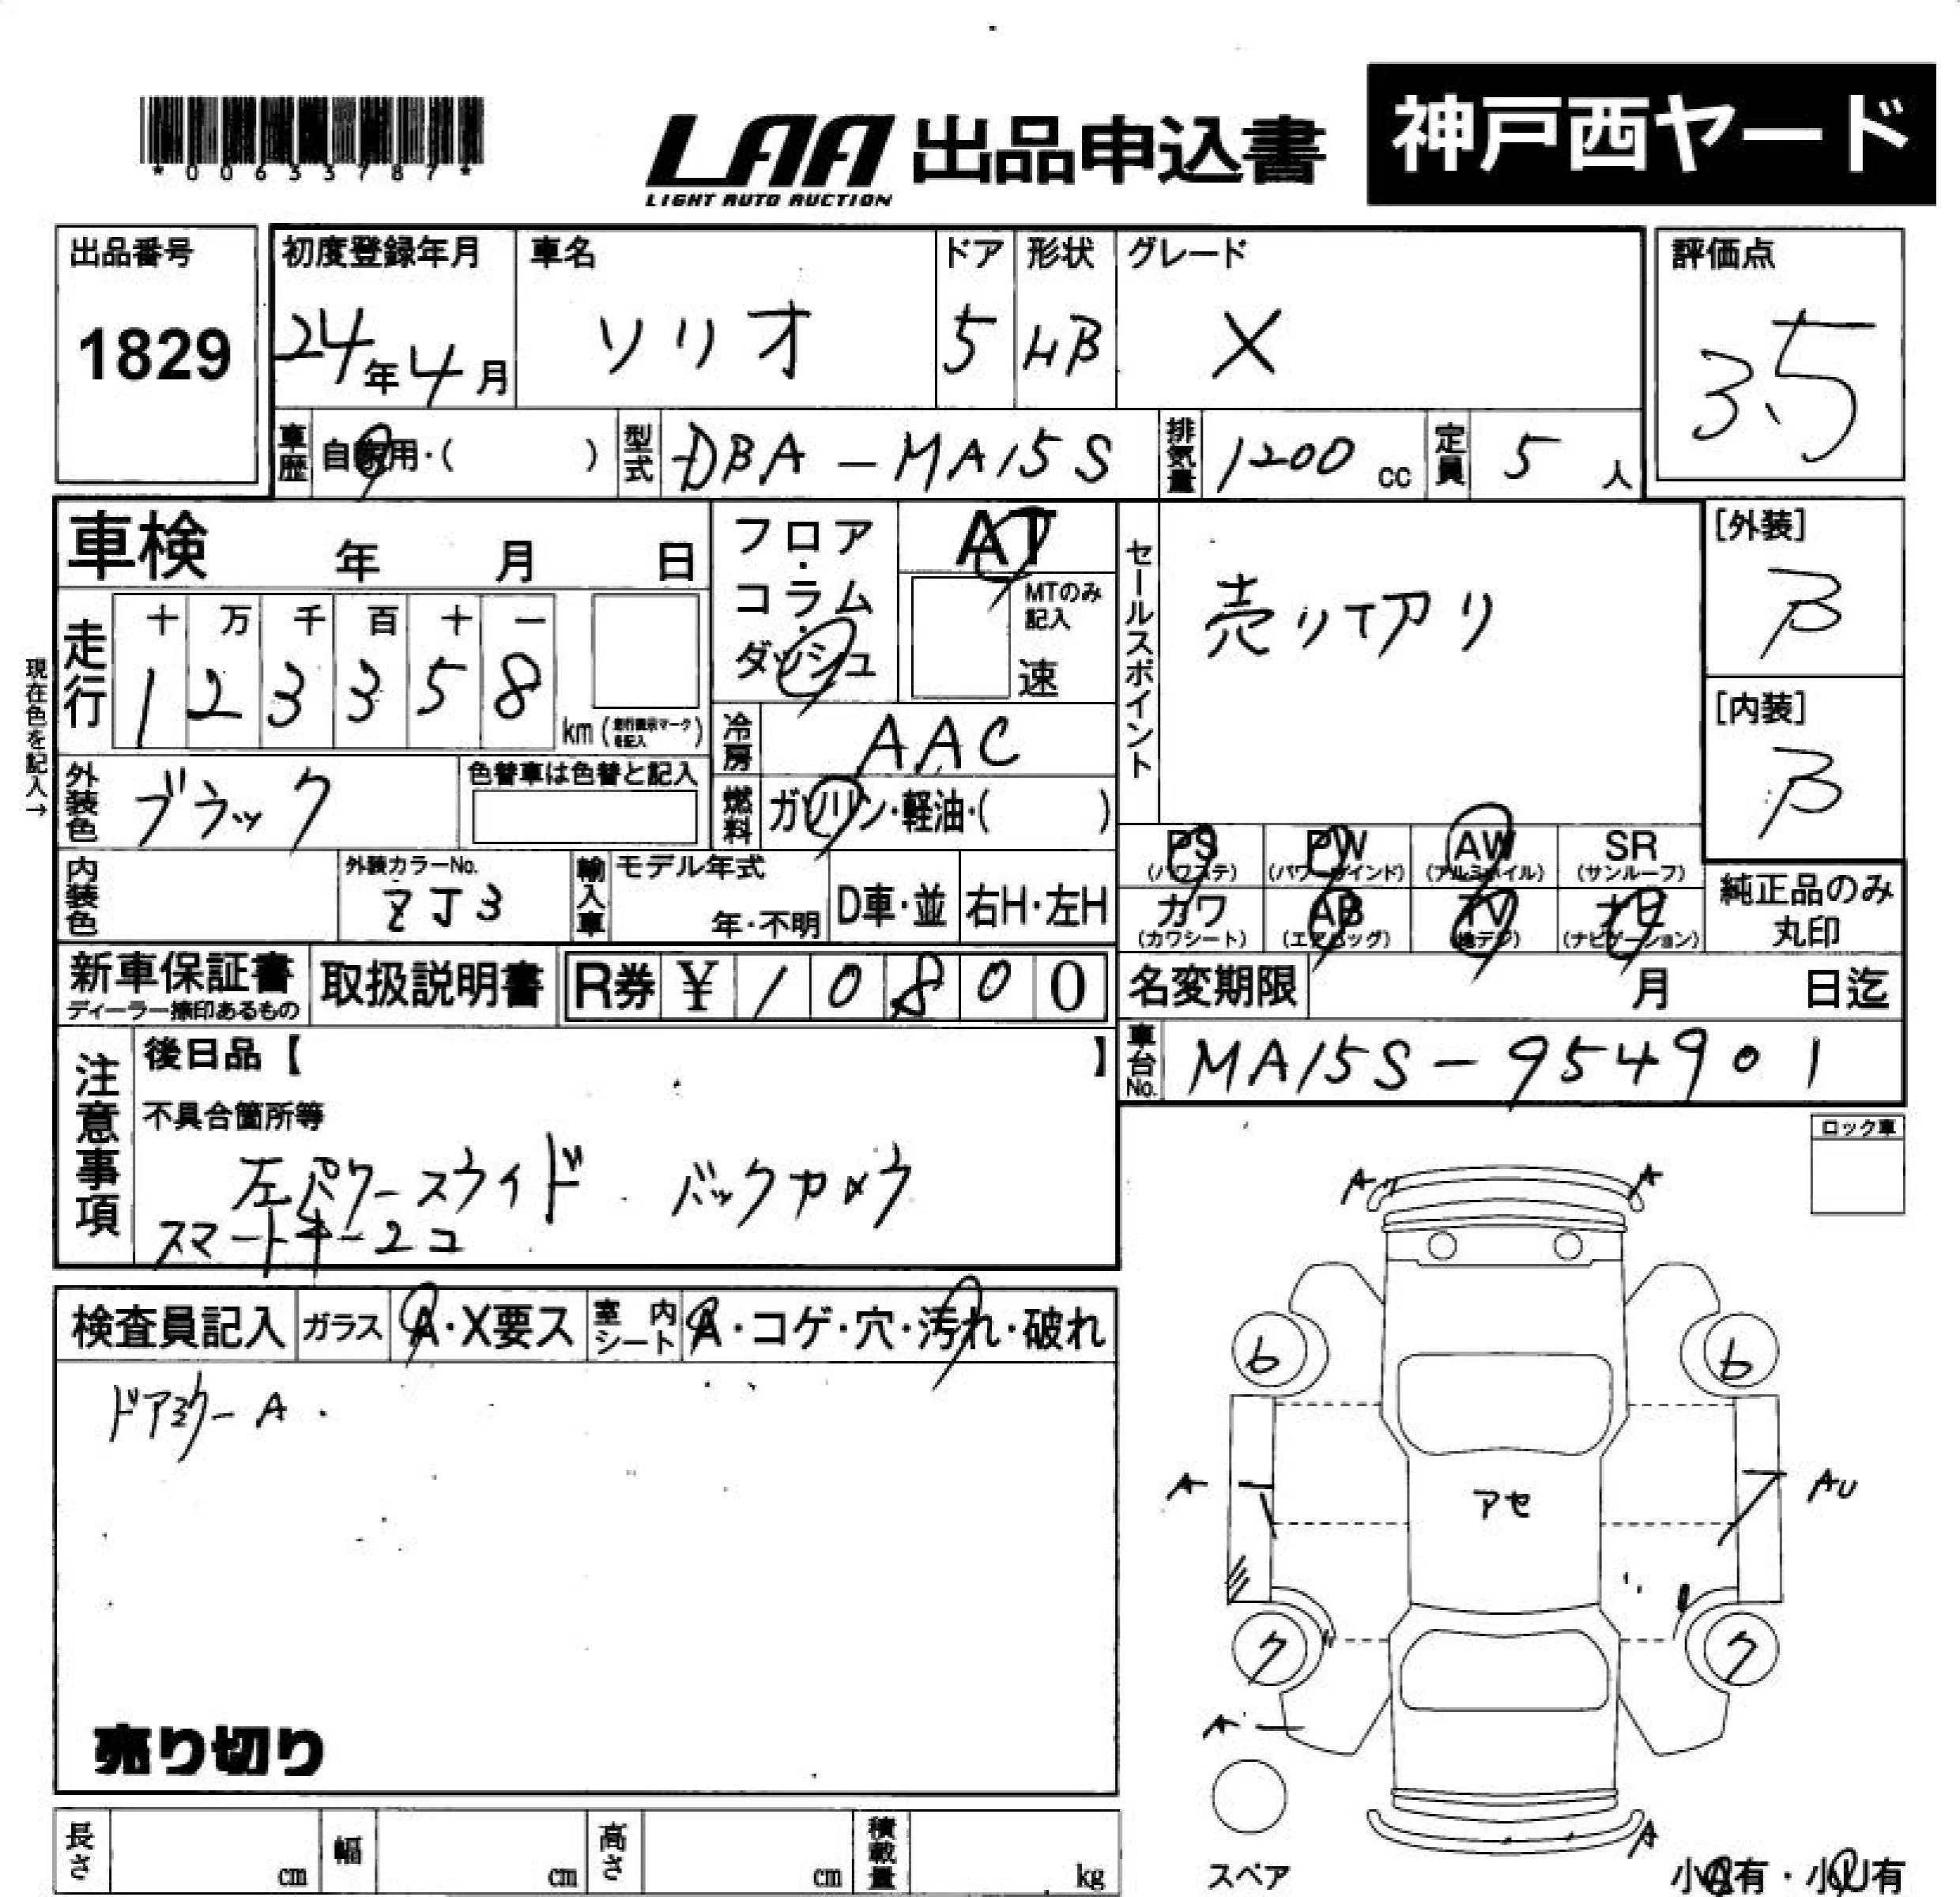 *00633787*
LAA 出品申込書
LIGHT AUTO AUCTION
神戸西ヤード
出品番号
1829
初度登録年月
24年4月
車名
ソリオ
ドア
5
形状
HB
グレード
X
評価点
3.5
車歴
自家用・( )
型式
DBA-MA15S
排気量
1200 cc
定員
5 人
車検 年 月 日
フロア・コラム・ダッシュ
AT
MTのみ記入
速
セールスポイント
売り切り
[外装]
B
[内装]
B
現在色を記入→
走行
十 万 千 百 十 一
1 2 3 3 5 8
km (走行表示マークを記入)
冷房
AAC
外装色
ブラック
色替車は色替と記入
燃料
ガソリン・軽油・( )
内装色
外装カラーNo.
ZJ3
輸入車
モデル年式
年・不明
D車・並
右H・左H
PS (パワステ)
PW (パワーウインド)
AW (アルミホイル)
SR (サンルーフ)
カワ (カワシート)
AB (エアバッグ)
TV (地デジ)
ナビ (ナビゲーション)
純正品のみ
丸印
新車保証書
ディーラー捺印あるもの
取扱説明書
R券 ¥ 1 0 8 0 0
名変期限 月 日迄
車台No.
MA15S-954901
注意事項
後日品【 】
不具合箇所等
左パワースライド バックカメラ
スマートキー2コ
ロック車
検査員記入
ガラス
A・X要ス
室内シート
A・コゲ・穴・汚れ・破れ
ドアミラーA
売り切り
A
A
b
b
A
アセ
AU
ク
ク
A
A
スペア
小A有・小U有
長さ cm
幅 cm
高さ cm
積載量 kg